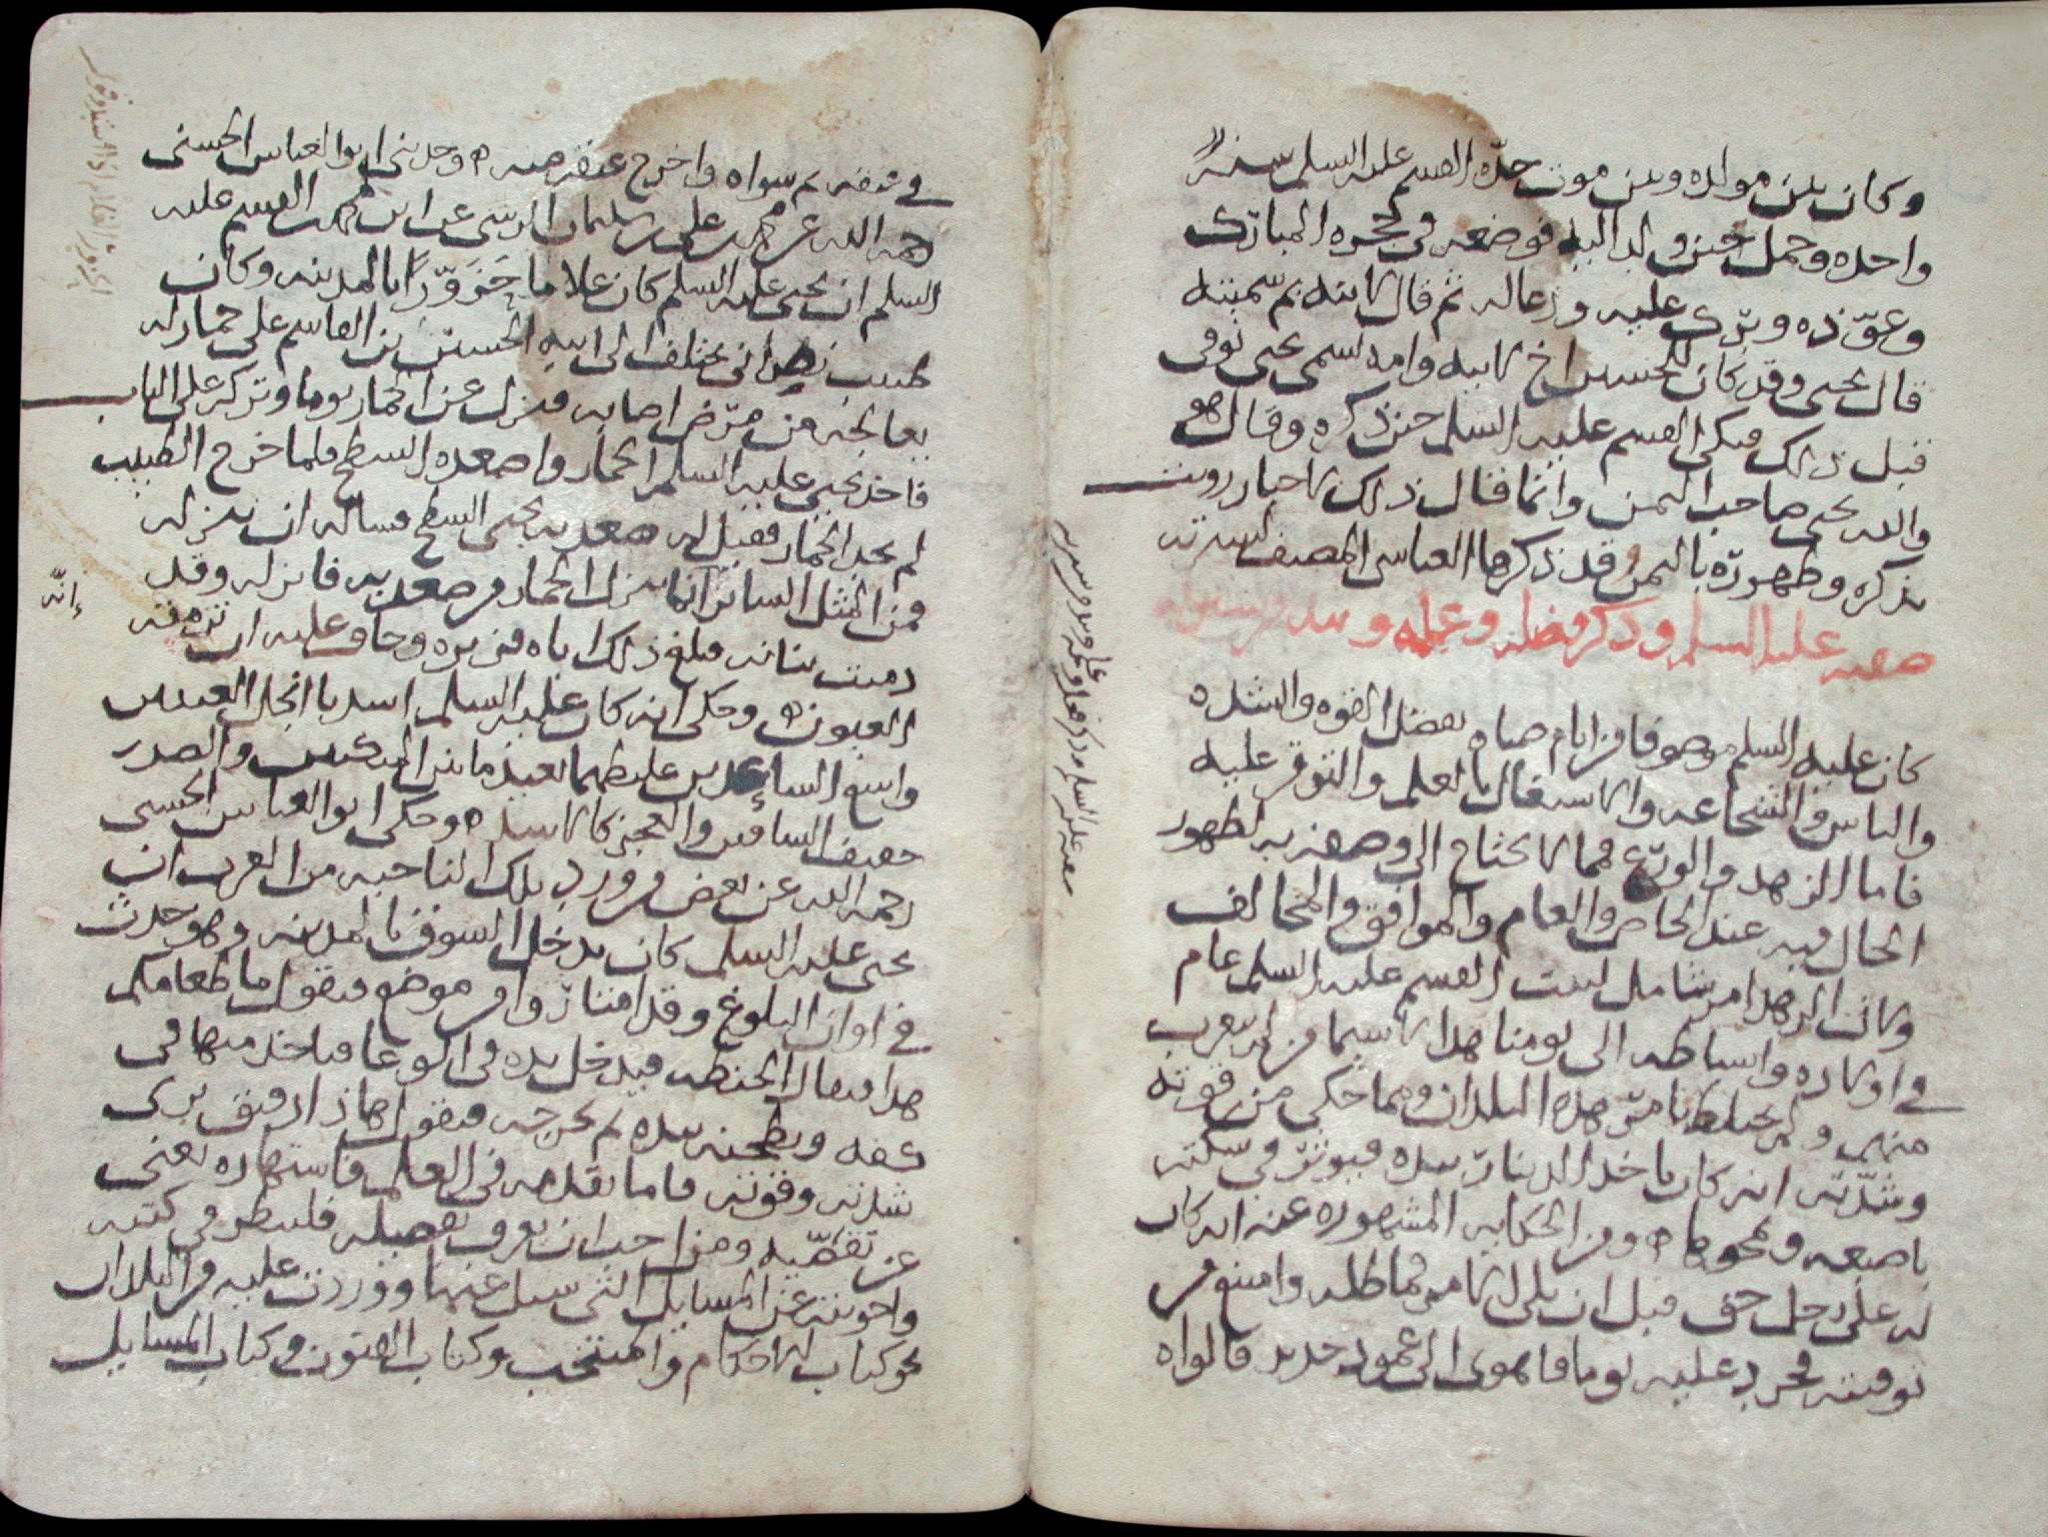 وكان بين مولده وبين موت جده القسم عليه السلم سنه
واحده وحمل حين ولد اليه فوضعه في حجره المبارك
وعوذه وبرك عليه ودعا له ثم قال لابنه بم سميته
قال يحيى وقد كان للحسين اخ لابيه وامه اسمى يحيى توفى
قبل ذلك فبكى القسم عليه السلم حين ذكره وقال هو
والله يحيى صاحب اليمن وانما قال ذلك لاخبار رويت
بذكره وظهوره باليمن وقد ذكرها العباسي المصنف لسيرته
صفته عليه السلم وذكر فضله وعلمه
كان عليه السلم موصوفا من ايام صباه بفضل القوه والشده
والباس والشجاعه والاشتغال بالعلم والتوفر عليه
فاما الزهد والورع فمما لا يحتاج الى وصفه به لظهور
الحال فيه عند الخاص والعام والموافق والمخالف
وكان الزهد امر شامل لبيت القسم عليه السلم عام
في اولاده واسباطه الى يومنا هذا لا سيما من لم يغرب
منهم ولم يختلط بامر هذه البلدان ومما حكي من قوته
وشدته انه كان ياخذ الدينار بيده فيوثر في سكته
باصبعه ويمحوها ومن الحكايه المشهوره عنه انه كان
له على رجل حق قبل ان يلي الامر فماطله وامتنع من
توفيته فحرد عليه يوما فاهوى الى عمود حديد فالواه
في عنقه ثم سواه واخرج عنقه منه وحدثني ابو العباس الحسني
رحمه الله عن محمد بن علي بن سليمان الرسي عن ابن محمد بن القسم عليه
السلم ان يحيى عليه السلم كان غلاما حزورا بالمدينه وكان
طبيب نصراني يختلف الى ابيه الحسين بن القاسم على حمار له
يعالجه من مرض اصابه فنزل عن الحمار يوما وتركه على الباب
فاخذ يحيى عليه السلم الحمار واصعده السطح فلما خرج الطبيب
لم يجد الحمار فقيل له صعد به يحيى السطح فساله ان ينزله
فمن المثل الساير انما ينزل الحمار من صعد به فانزله وقد
دميت بنانه فبلغ ذلك اباه فزبره وخاف عليه ان ترمقه
إنه
العيون وحكي انه كان عليه السلم اسديا انجل العينين
واسع الساعدين غليظهما بعيد ما بين المنكبين والصدر
خفيف الساقين والعجز كالاسد وحكى ابو العباس الحسني
رحمه الله عن بعض من ورد تلك الناحيه من العرب ان
يحيى عليه السلم كان يدخل السوق بالمدينه وهو حدث
في اوان البلوغ وقد امتاروا من موضع فيقول ما طعامكم
هذا فيقال الحنطه فيدخل يده في الوعا فياخذ منها في
كفه ويطحنه بيده ثم يخرجه فيقول هذا دقيق يرى
شدته وقوته فاما تقدمه في العلم فاشتهاره يغني
عن تقصيه ومن احب ان يعرف تفصيله فلينظر في كتبه
واجوبته عن المسايل التي سيل عنها ووردت عليه من البلدان
نحو كتاب الاحكام والمنتخب وكتاب الفنون وكتاب المسايل